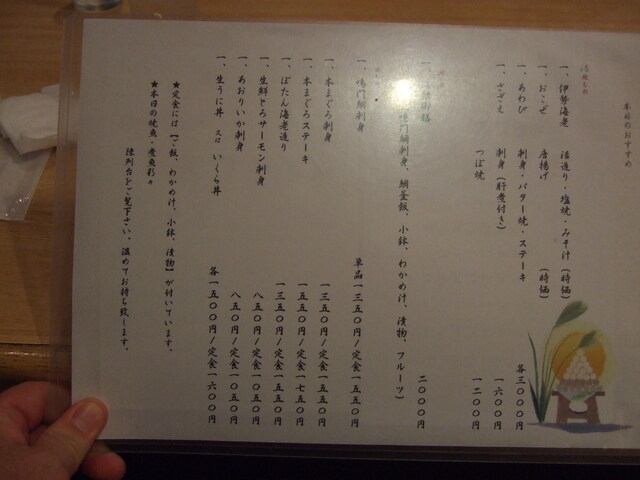 本日のおすすめ
一、伊勢海老 活造り・塩焼・みそ汁(時価)
一、おこぜ 唐揚げ (時価)
一、あわび 刺身・バター焼・ステーキ 各三〇〇〇円
一、さざえ 刺身(肝煮付き) 一六〇〇円
つぼ焼 一二〇〇円
御膳 二〇〇〇円
鳴門鯛刺身、鯛釜飯、小鉢、わかめ汁、漬物、フルーツ)
一、鳴門鯛刺身 単品一三五〇円/定食一五五〇円
一、本まぐろ刺身 一三五〇円/定食一五五〇円
一、本まぐろステーキ 一五五〇円/定食一七五〇円
一、ぼたん海老造り 一三五〇円/定食一五五〇円
一、生鮮とろサーモン刺身 八五〇円/定食一〇五〇円
一、あおりいか刺身 八五〇円/定食一〇五〇円
一、生うに丼 又は いくら丼 各一五〇〇円/定食一六〇〇円
★定食には【ご飯、わかめ汁、小鉢、漬物】が付いています。
★本日の焼魚・煮魚
陳列台をご覧下さい。温めてお持ち致します。